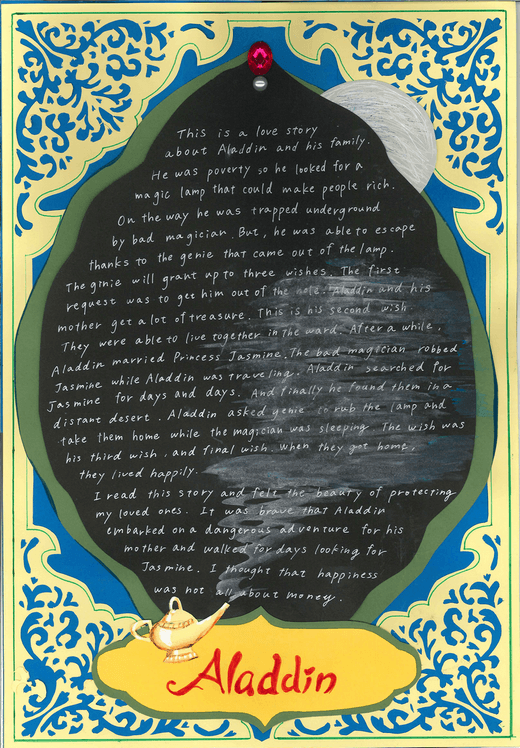 This is a love story
about Aladdin and his family.
He was poverty so he looked for a
magic lamp that could make people rich.
On the way he was trapped underground
by bad magician. But, he was able to escape
thanks to the genie that came out of the lamp.
The ginie will grant up to three wishes. The first
request was to get him out of the hole. Aladdin and his
mother get a lot of treasure. This is his second wish
They were able to live together in the ward. After a while,
Aladdin married Princess Jasmine. The bad magician robbed
Jasmine while Aladdin was traveling. Aladdin searched for
Jasmine for days and days. And finally he found them in a
distant desert. Aladdin asked genie to rub the lamp and
take them home while the magician was sleeping. The wish was
his third wish, and final wish. When they got home,
they lived happily.
I read this story and felt the beauty of protecting
my loved ones. It was brave that Aladdin
embarked on a dangerous adventure for his
mother and walked for days looking for
Jasmine. I thought that happiness
was not all about money.
Aladdin